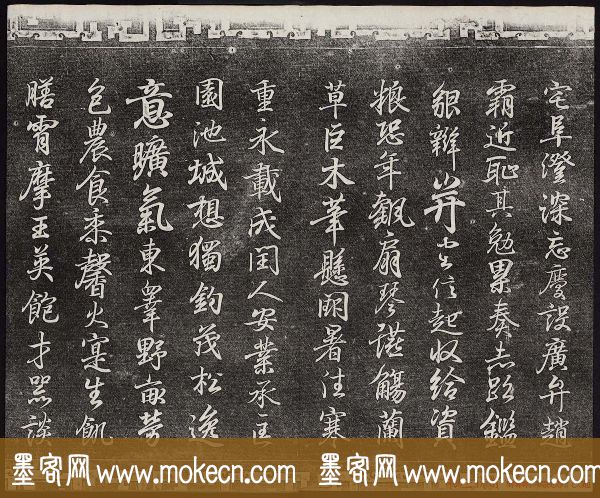 宅阜澄深忘慶設廣弁趙
霸近恥其勉累奏志路鑑
貌辨安信起收給資
糧恐年飄扇琴讌觴蘭
草巨木華懸朗暑往寒
重永載成閏人安業承匡
園池城想獨鈞茂松逸
意曠氣東野畝勞
包農食黍馨火寔生飢
膳霄摩王英飽才器談
墨客网 www.mokecn.com 墨客网 www.mokecn.com